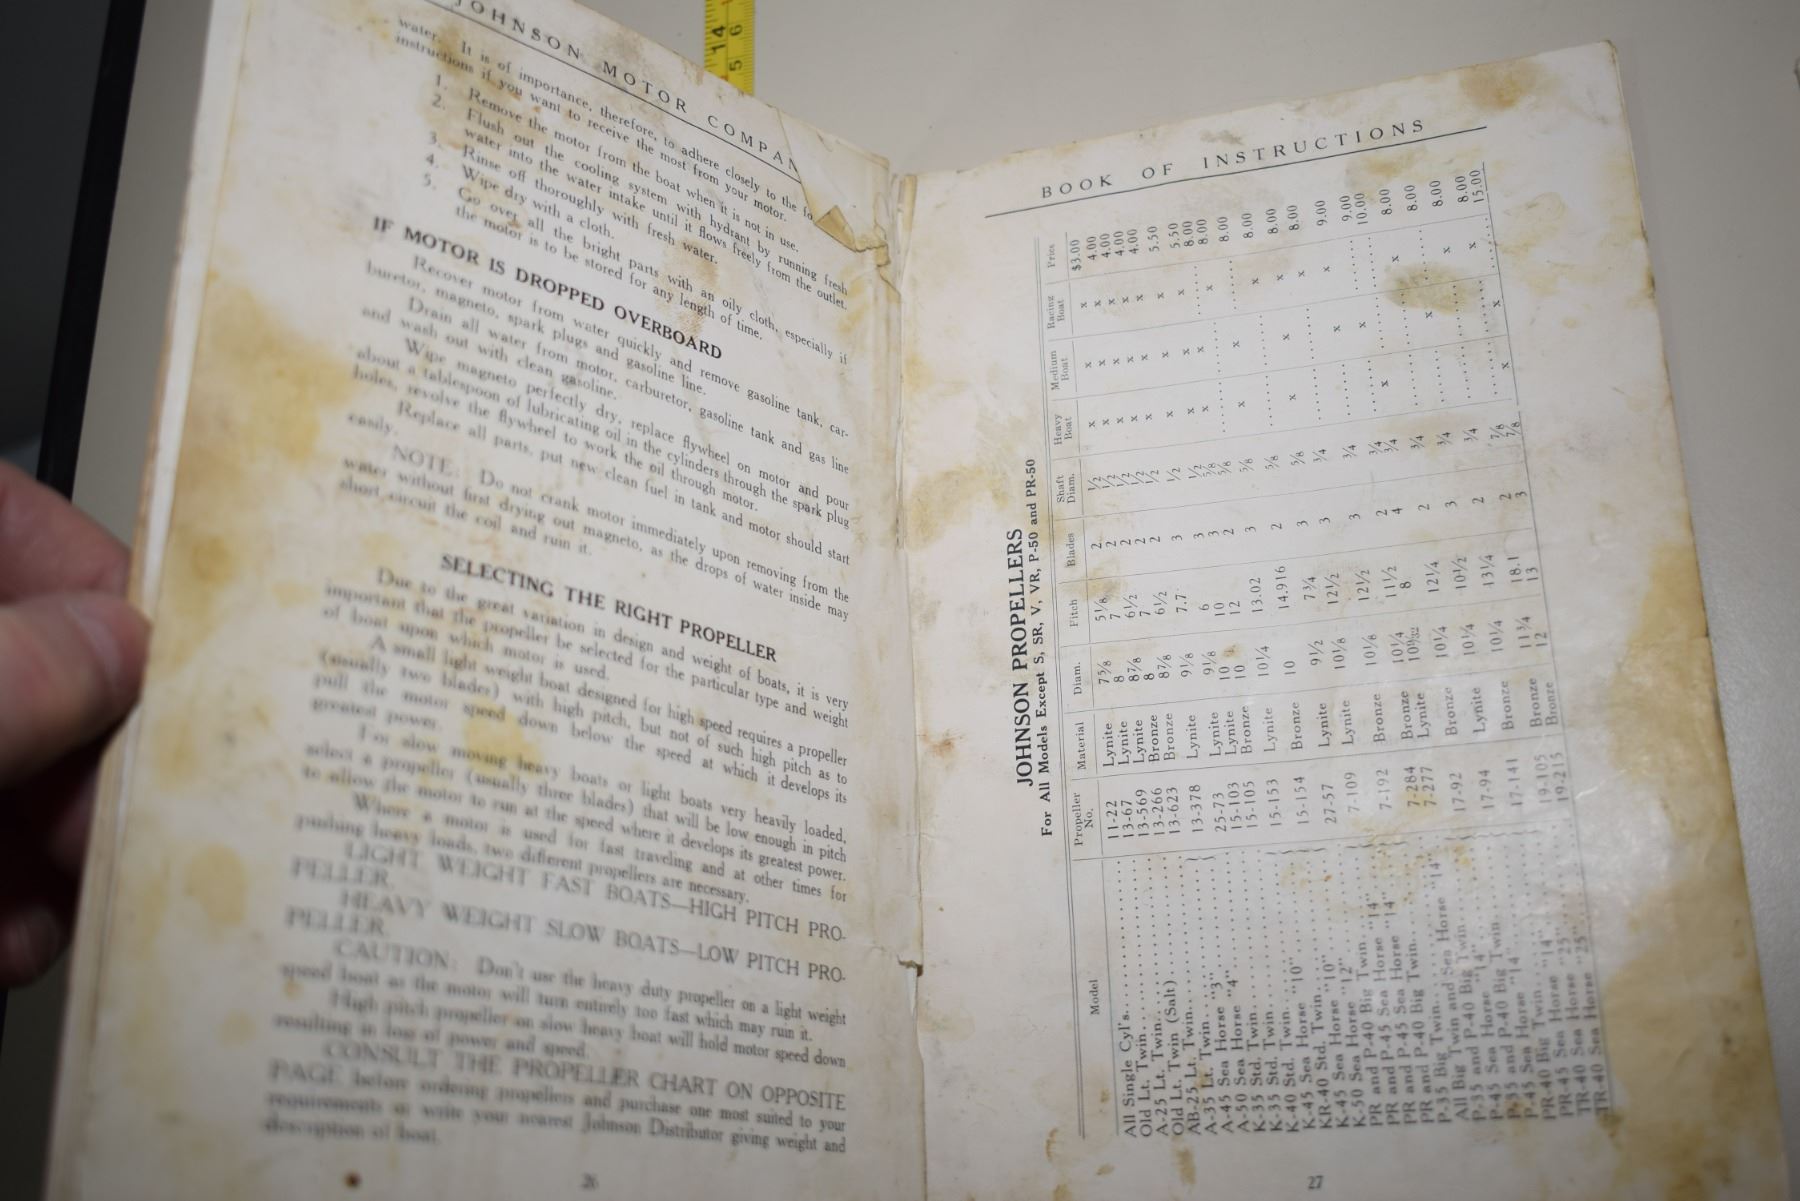 JOHNSON MOTOR COMPAN
water. It is of importance, therefore, to adhere closely to the fo
instructions if you want to receive the most from your motor.
1. Remove the motor from the boat when it is not in use.
2. Flush out the cooling system with hydrant by running fresh
water into the water intake until it flows freely from the outlet.
3. Rinse off thoroughly with fresh water.
4. Wipe dry with a cloth.
5. Go over all the bright parts with an oily cloth, especially if
the motor is to be stored for any length of time.
IF MOTOR IS DROPPED OVERBOARD
Recover motor from water quickly and remove gasoline tank, car-
buretor, magneto, spark plugs and gasoline line.
Drain all water from motor, carburetor, gasoline tank and gas line
and wash out with clean gasoline.
Wipe magneto perfectly dry, replace flywheel on motor and pour
about a tablespoon of lubricating oil in the cylinders through the spark plug
holes, revolve the flywheel to work the oil through motor.
Replace all parts, put new clean fuel in tank and motor should start
easily.
NOTE: Do not crank motor immediately upon removing from the
water without first drying out magneto, as the drops of water inside may
short circuit the coil and ruin it.
SELECTING THE RIGHT PROPELLER
Due to the great variation in design and weight of boats, it is very
important that the propeller be selected for the particular type and weight
of boat upon which motor is used.
A small light weight boat designed for high speed requires a propeller
(usually two blades) with high pitch, but not of such high pitch as to
pull the motor speed down below the speed at which it develops its
greatest power.
For slow moving heavy boats or light boats very heavily loaded,
select a propeller (usually three blades) that will be low enough in pitch
to allow the motor to run at the speed where it develops its greatest power.
Where a motor is used for fast traveling and at other times for
pushing heavy loads, two different propellers are necessary.
LIGHT WEIGHT FAST BOATS—HIGH PITCH PRO-
PELLER.
HEAVY WEIGHT SLOW BOATS—LOW PITCH PRO-
PELLER.
CAUTION: Don't use the heavy duty propeller on a light weight
speed boat as the motor will turn entirely too fast which may ruin it.
High pitch propeller on slow heavy boat will hold motor speed down
resulting in loss of power and speed.
CONSULT THE PROPELLER CHART ON OPPOSITE
PAGE before ordering propellers and purchase one most suited to your
requirements or write your nearest Johnson Distributor giving weight and
description of boat.
26
14
5 6
BOOK OF INSTRUCTIONS
JOHNSON PROPELLERS
For All Models Except S, SR, V, VR, P-50 and PR-50
Model Propeller No. Material Diam. Pitch Blades Shaft Diam. Heavy Boat Medium Boat Racing Boat Price
All Single Cyl's. 11-22 Lynite 7⅝ 5⅛ 2 ½ x x x $3.00
Old Lt. Twin 13-67 Lynite 8 7 2 ½ x x x 4.00
A-25 Lt. Twin 13-569 Lynite 8⅞ 6½ 2 ½ x x x 4.00
Old Lt. Twin (Salt) 13-266 Bronze 8 7 2 ½ x x x 4.00
AB-25 Lt. Twin 13-623 Bronze 8⅞ 6½ 2 ½ x x x 4.00
A-35 Lt. Twin 13-378 Lynite 9⅛ 7.7 3 ½ x x x 5.50
A-45 Sea Horse "3"
A-50 Sea Horse "4" 25-73 Lynite 9⅛ 6 3 ½ x x x 5.50
K-35 Std. Twin 15-103 Lynite 10 10 3 ⅝ x x 8.00
K-35 Std. Twin 15-105 Bronze 10 12 2 ⅝ x 8.00
K-40 Std. Twin 15-153 Lynite 10¼ 13.02 3 ⅝ x x 8.00
K-45 Sea Horse "10"
KR-40 Std. Twin 15-154 Bronze 10 14.916 2 ⅝ x 8.00
K-45 Sea Horse "10"
K-50 Sea Horse "12" 27-57 Lynite 9½ 7¾ 3 ⅝ x x x 8.00
PR and P-40 Big Twin 7-109 Lynite 10⅛ 12½ 3 ¾ 8.00
PR and P-45 Sea Horse "14"
PR and P-40 Big Twin 7-192 Bronze 10⅛ 12½ 3 ¾ 9.00
PR and P-45 Sea Horse "14"
PR and P-40 Big Twin 7-284 Bronze 10¼ 11½ 2 ¾ 9.00
P-35 Big Twin 7-277 Lynite 8 4 ¾ 10.00
All Big Twin and Sea Horse "14" 17-92 Bronze 10¼ 12¼ 2 ¾ 8.00
P-35 and P-40 Big Twin 17-94 Lynite 10¼ 10½ 3 ¾ 8.00
P-45 Sea Horse "14"
P-35 and P-40 Big Twin 17-141 Bronze 10¼ 13¼ 2 ¾ 8.00
P-45 Sea Horse "14"
PR-40 Big Twin 19-105 Bronze 11¾ 18.1 2 ⅞ x 8.00
PR-45 Sea Horse "14"
TR-40 Sea Horse "25" 19-215 Bronze 12 13 3 ⅞ x x 15.00
TR-40 Sea Horse "25"
27